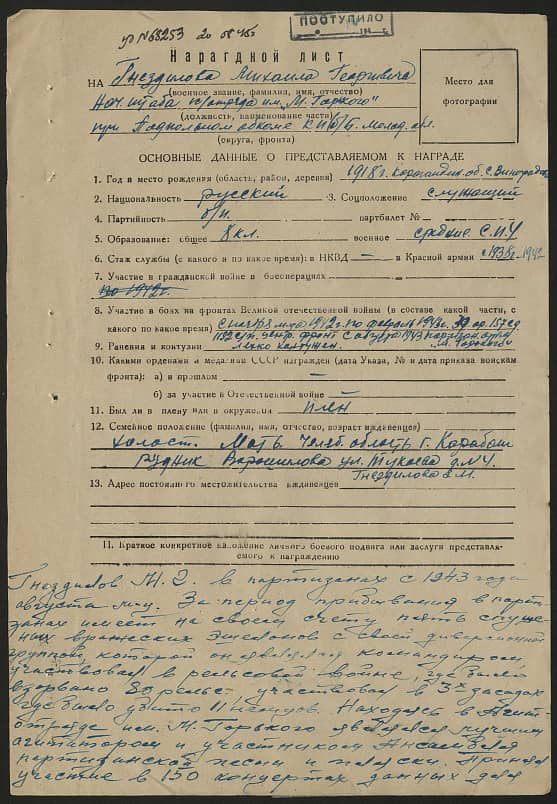 №68253 20 08 46
ПОСТУПИЛО
Нарагдной лист
НА Гнездилова Михаила Георгиевича
(военное звание, фамилия, имя, отчество)
Нач. штаба п/отряда им. „М. Горкого"
(должность, наименование части)
при Подпольном обкоме К П(б)Б. Молод. обл.
(округа, фронта)
Место для
фотографии
ОСНОВНЫЕ ДАННЫЕ О ПРЕДСТАВЛЯЕМОМ К НАГРАДЕ
1. Год и место рождения (область, район, деревня) 1918г. Карагандин. об. С. Виноградов
2. Национальность русский 3. Соцположение служащий
4. Партийность б/п. партбилет №
5. Образование: общее 8 кл. военное средние С.П.У
6. Стаж службы (с какого и по какое время): в НКВД — в Красной армии с 1938г.-1942
7. Участие в гражданской войне в боеоперациях
по 1942г.
8. Участие в боях на фронтах Великой отечественной войны (в составе какой части, с
какого по какое время) 1942г. по февраль 1943г.
фронт с августа 1943 партизан отряд
9. Ранения и контузии легко контужен. М. Горького
10. Какими орденами и медалями СССР награжден (дата Указа, № и дата приказа войскам
фронта): а) в прошлом —
б) за участие в Отечественной войне —
11. Был ли в плену или в окружении плен
12. Семейное положение (фамилия, имя, отчество, возраст иждивенцев)
холост. Мать Челяб. область г. Карабаш
рудник Ворошилова ул. Тукаева д. № 4.
Гнездилова М.
13. Адрес постоянного местожительства иждивенцев
II. Краткое конкретное изложение личного боевого подвига или заслуги представля-
емого к награждению
Гнездилов М. Г. в партизанах с 1943 года
августа м-ц. За период пребывания в парти-
занах имеет на своем счету пять спуще-
ных вражеских эшелонов с своей диверсионной
группой, которой он являлся командиром
участвовал в рельсовой войне, где было
взорвано 30 рельс. участвовал в 3х засадах
где было убито 11 немцов. Находясь в
отряде им. М. Горького являлся лучшим
агитатором и участником Ансамбля
партизанской песни и пляски. Принял
участие в 150 концертах данных для